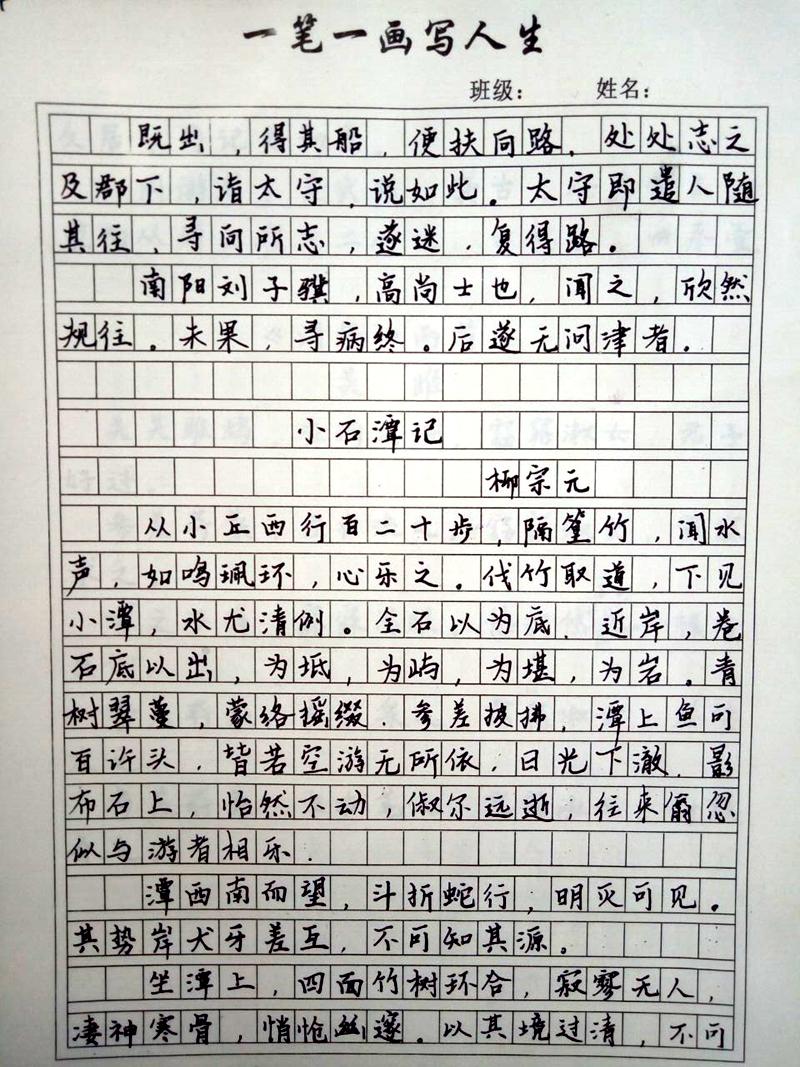 一笔一画写人生
班级： 姓名：
既出，得其船，便扶向路，处处志之
及郡下，诣太守，说如此。太守即遣人随
其往，寻向所志，遂迷，复得路。
南阳刘子骥，高尚士也，闻之，欣然
规往。未果，寻病终。后遂无问津者。
小石潭记
柳宗元
从小丘西行百二十步，隔篁竹，闻水
声 如鸣珮环，心乐之。伐竹取道，下见
小潭，水尤清例。全石以为底，近岸，卷
石底以出，为坻，为屿，为堪，为岩。青
树翠蔓，蒙络摇缀，参差披拂，潭上鱼可
百许头，皆若空游无所依，日光下澈，影
布石上，怡然不动，俶尔远逝；往来翕忽
似与游者相乐．
潭西南而望，斗折蛇行，明灭可见。
其势岸犬牙差互，不可知其源。
坐潭上，四面竹树环合，寂寥无人，
凄神寒骨，悄怆幽邃。以其境过清，不可